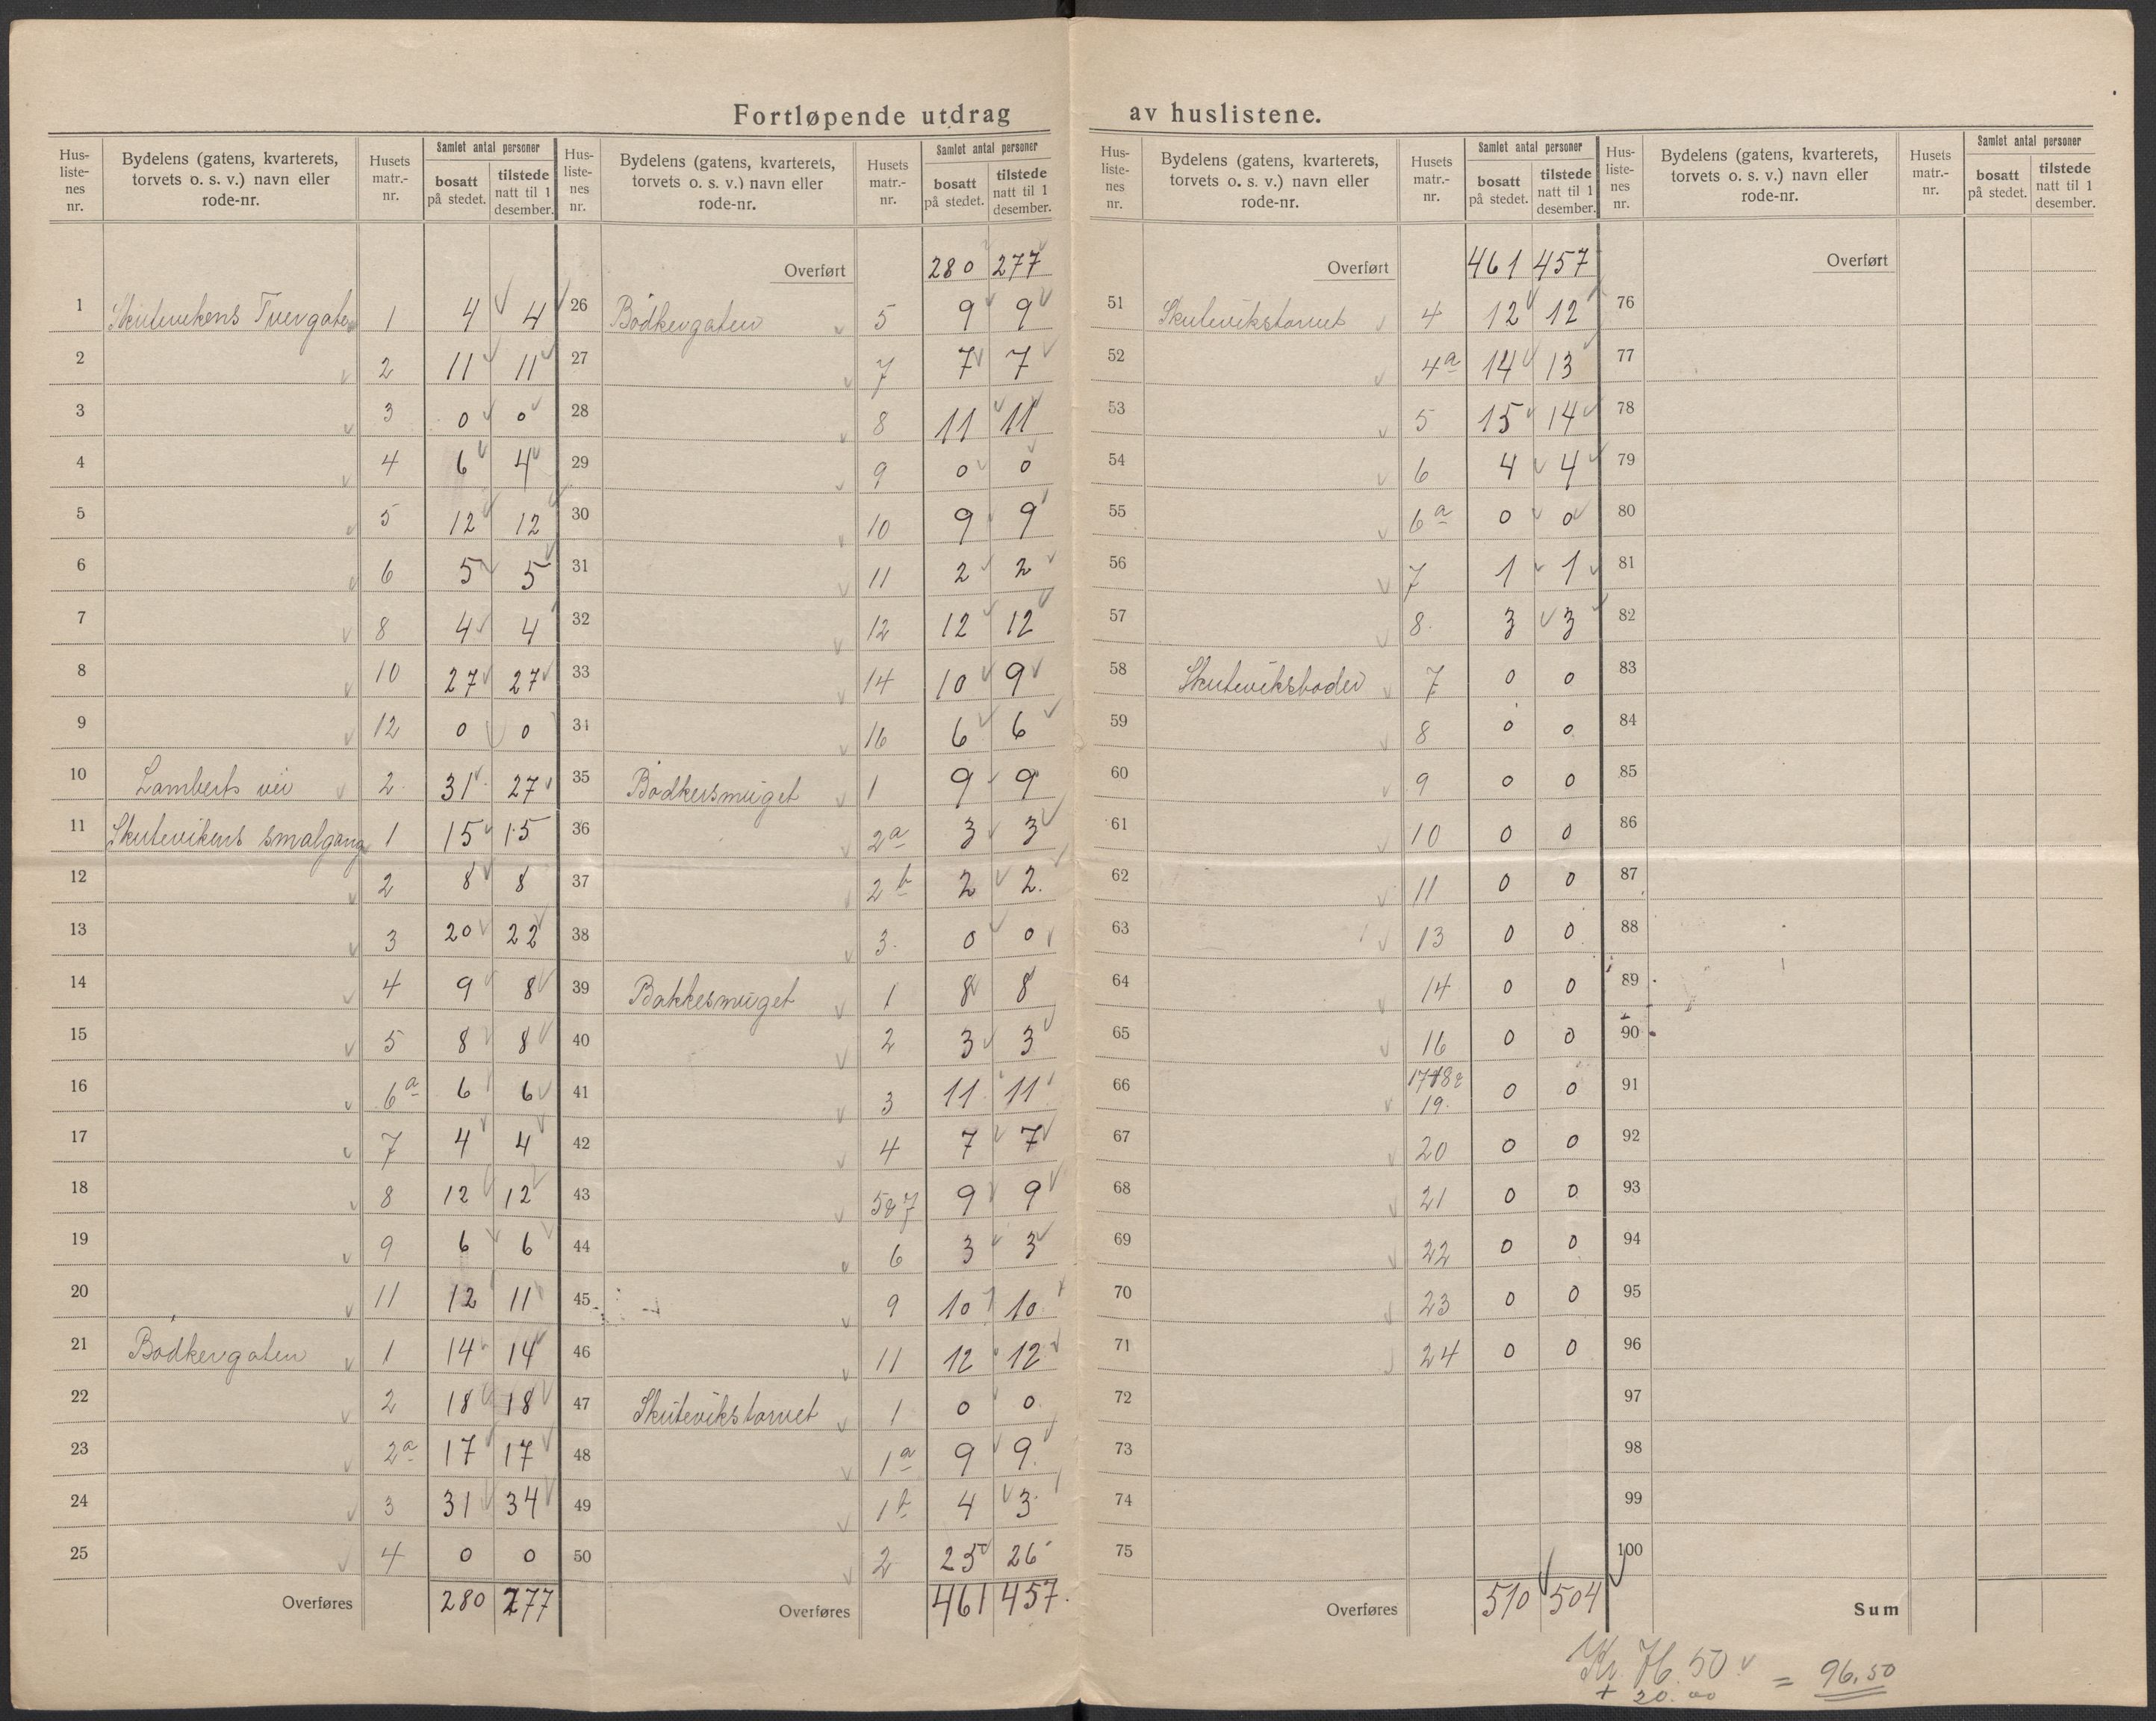 Fortløpende utdrag av huslistene.
Hus-listenes nr. | Bydelens (gatens, kvarterets, torvets o. s. v.) navn eller rode-nr. | Husets matr.-nr. | Samlet antal personer bosatt på stedet. | tilstede natt til 1 desember.
1 Skutevikens Tvergaten 1 4 4
2 2 11 11
3 3 0 0
4 4 6 4
5 5 12 12
6 6 5 5
7 8 4 4
8 10 27 27
9 12 0 0
10 Lamberts vei 2 31 27
11 Skutevikens smalgang 1 15 15
12 2 8 8
13 3 20 22
14 4 9 8
15 5 8 8
16 6a 6 6
17 7 4 4
18 8 12 12
19 9 6 6
20 11 12 11
21 Bødkergaten 1 14 14
22 2 18 18
23 2a 17 17
24 3 31 34
25 4 0 0
Overføres 280 277
Hus-listenes nr. | Bydelens (gatens, kvarterets, torvets o. s. v.) navn eller rode-nr. | Husets matr.-nr. | Samlet antal personer bosatt på stedet. | tilstede natt til 1 desember.
Overført 280 277
26 Bødkergaten 5 9 9
27 7 7 7
28 8 11 11
29 9 0 0
30 10 9 9
31 11 2 2
32 12 12 12
33 14 10 9
34 16 6 6
35 Bødkersmuget 1 9 9
36 2a 3 3
37 2b 2 2.
38 3. 0 0
39 Bakkesmuget 1 8 8
40 2 3 3
41 3 11 11
42 4 7 7
43 5&7 9 9
44 6 3 3
45 9 10 10
46 11 12 12
47 Skutevikstorvet 1 0 0
48 1a 9 9
49 1b 4 3
50 2 25 26
Overføres 461 457
Hus-listenes nr. | Bydelens (gatens, kvarterets, torvets o. s. v.) navn eller rode-nr. | Husets matr.-nr. | Samlet antal personer bosatt på stedet. | tilstede natt til 1 desember.
Overført 461 457
51 Skutevikstorvet 4 12 12
52 4a 14 13
53 5 15 14
54 6 4 4
55 6a 0 0
56 7 1 1
57 8. 3 3
58 Skuteviksboder 7 0 0
59 8 0 0
60 9 0 0
61 10 0 0
62 11 0 0
63 13 0 0
64 14 0 0
65 16 0 0
66 17 18 & 19. 0 0
67 20 0 0
68 21 0 0
69 22 0 0
70 23 0 0
71 24 0 0
72
73
74
75
Overføres 510 504
Hus-listenes nr. | Bydelens (gatens, kvarterets, torvets o. s. v.) navn eller rode-nr. | Husets matr.-nr. | Samlet antal personer bosatt på stedet. | tilstede natt til 1 desember.
Overført
76
77
78
79
80
81
82
83
84
85
86
87
88
89
90
91
92
93
94
95
96
97
98
99
100
Sum
Kr. 76.50 = 96.50
+ 20.00